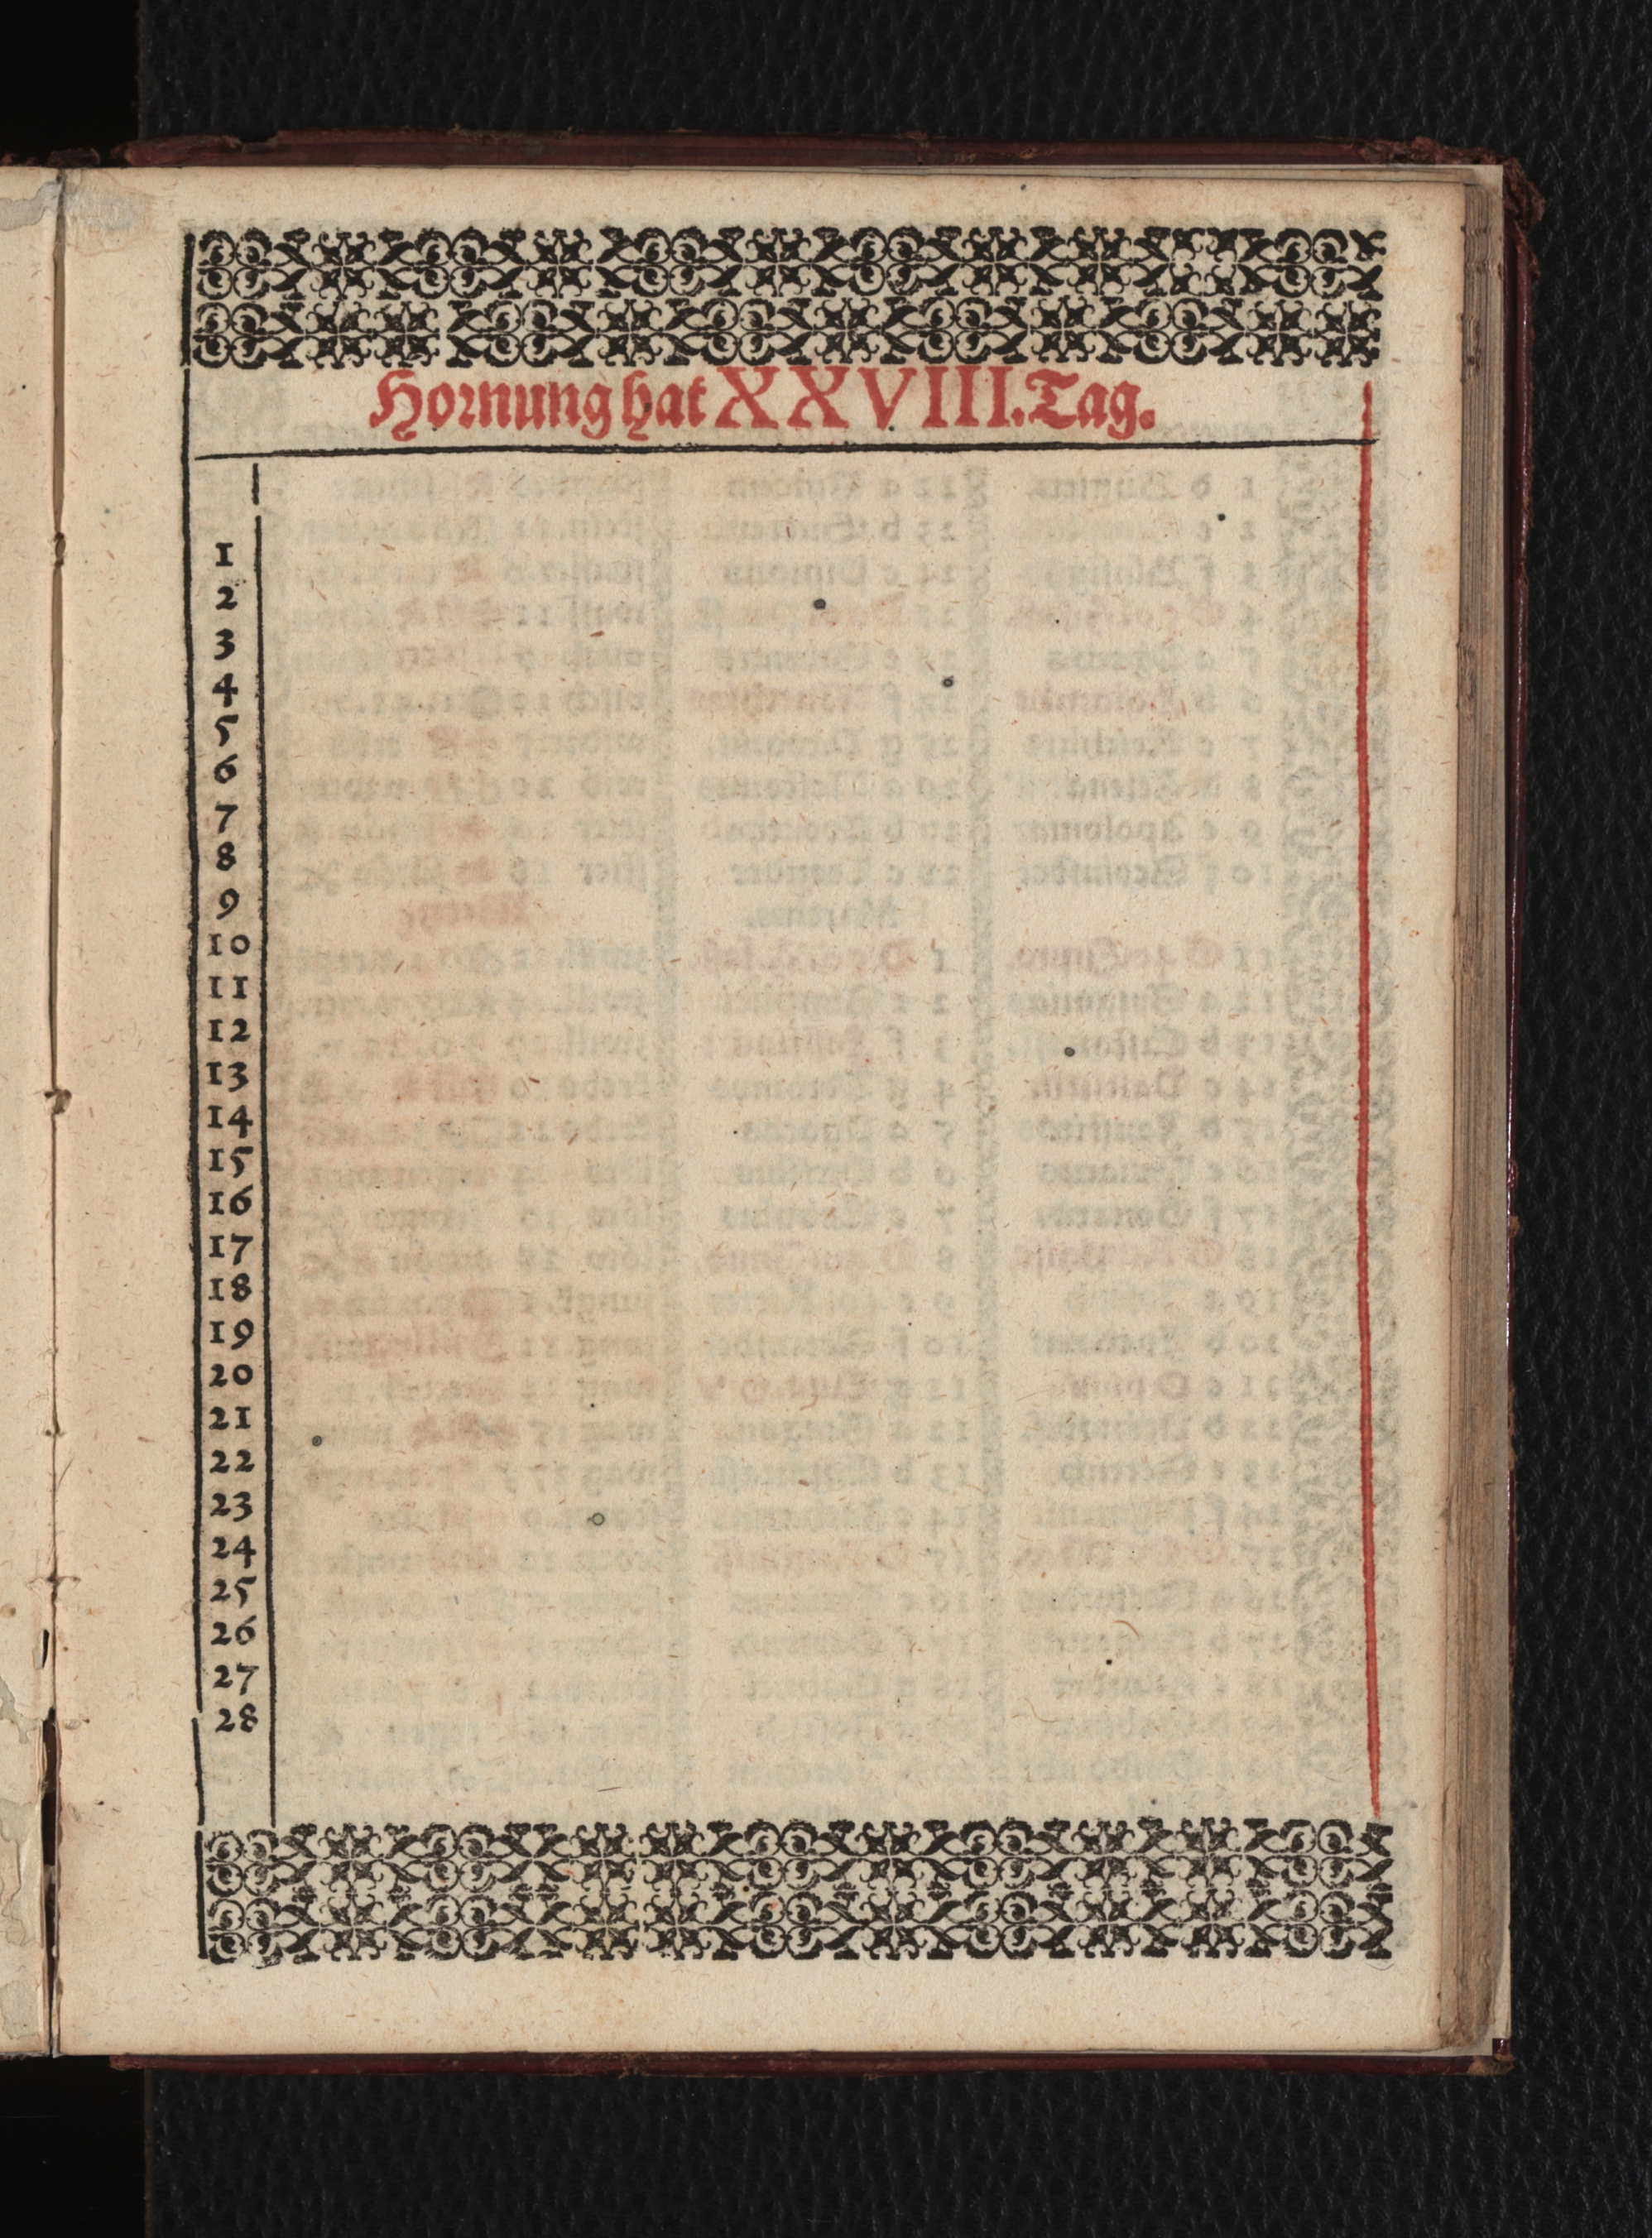 Hornung hat XXVIII. Tag.
1
2
3
4
5
6
7
8
9
10
11
12
13
14
15
16
17
18
19
20
21
22
23
24
25
26
27
28